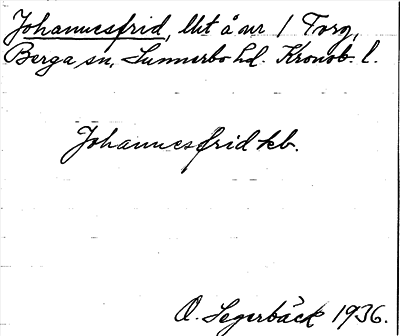 Johannesfrid, lht å nr 1 Torg,
Berga sn, Sunnerbo hd. Kronob. l.
Johannesfrid kb.
O. Segerbäck 1936.